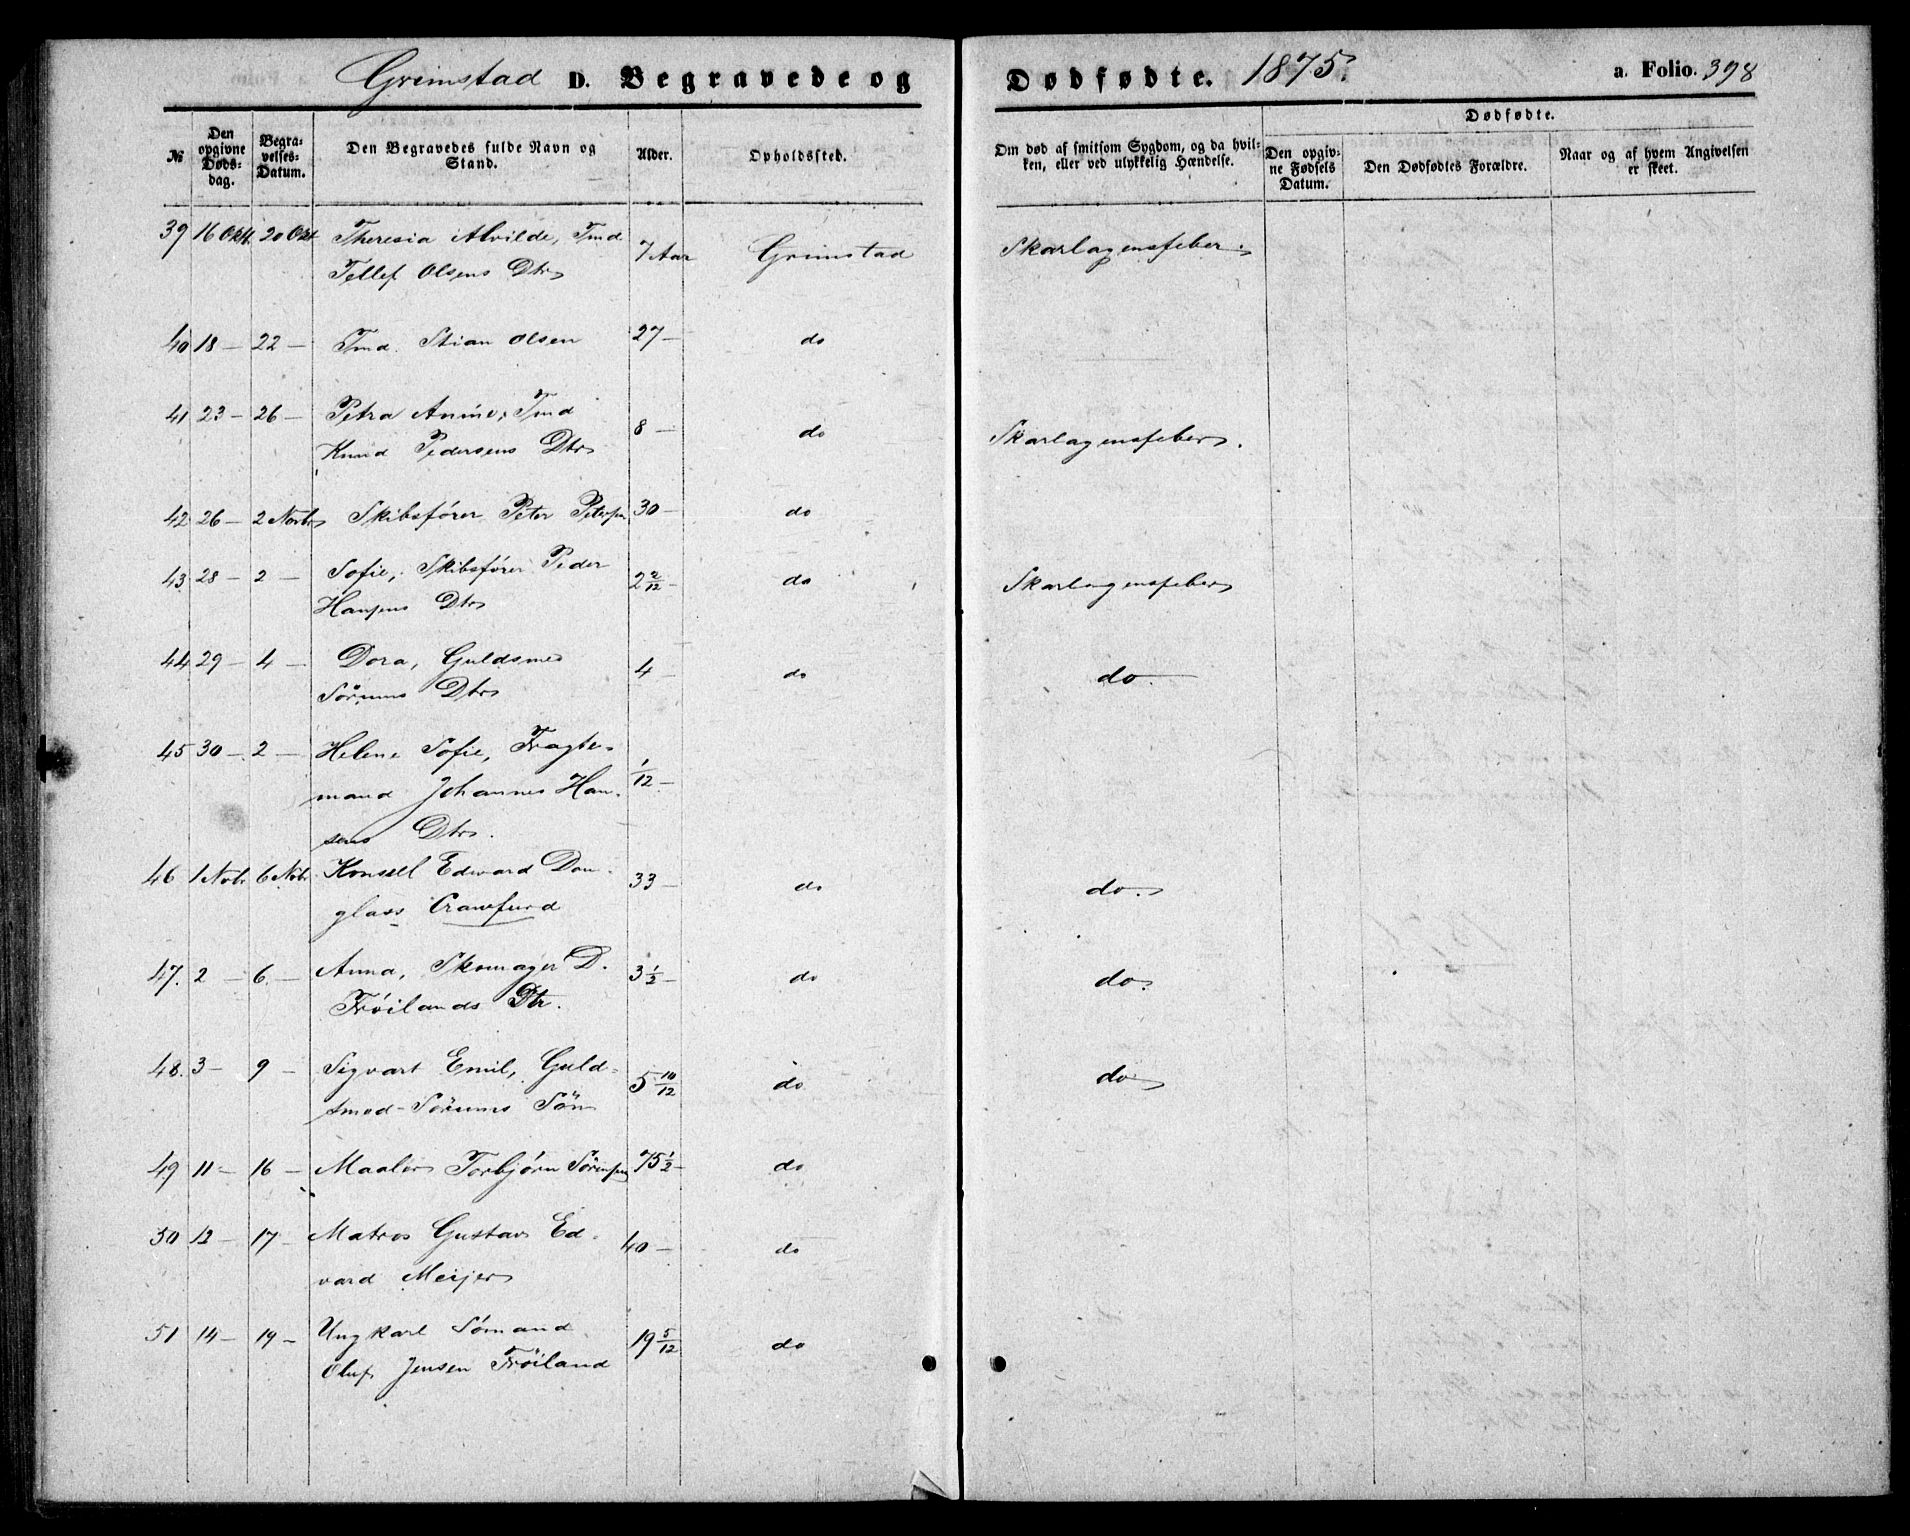 Grimstad D. Begravede og Dødfødte. 1875. a. Folio. 398
№ Den opgivne Døds-dag. Begra-velses-Datum. Den Begravedes fulde Navn og Stand. Alder. Opholdssted. Om død af smitsom Sygdom, og da hvil-ken, eller ved ulykkelig Hændelse. Dødfødte. Den opgiv-ne Fødsels Datum. Den Dødfødtes Forældre. Naar og af hvem Angivelsen er skeet.
39 16 Okt. 20 Okt Theresia Alvilde, Tmd 7 Aar Grimstad Skarlagensfeber.
Tellef Olsens Dtr
40 18 — 22 — Tmd. Stian Olsen 27 — do
41 23 — 26 — Petra Anine, Tmd 8 — do Skarlagensfeber.
Knud Pedersens Dtr
42 26 — 2 Novbr Skibsfører Peter Petersen 30 — do
43 28 — 2 — Sofie, Skibsfører Peder 2 2/12 — do Skarlagensfeber
Hansens Dtr
44 29 — 4 — Dora, Guldsmed 4 — do do.
Sørums Dtr
45 30 — 2 — Helene Sofie, Fragte- 1/12 —
mand Johannes Han-
sens Dtr.
46 1 Novbr 6 Novbr Konsul Edward Dou- 33 — do do.
glass Crawfurd
47. 2 — 6. — Anna, Skomager D. 3 1/2 — do do.
Frøilands Dtr.
48. 3 — 9 — Sigvart Emil, Guld- 5 10/12 do do
smed Sørums Søn
49 11 — 16 — Maaler Torbjørn Sørensen 75 1/2 — do
50 12 — 17 — Matros Gustav Ed- 40 — do
vard Meijer
51 14 — 19 — Ungkarl Sømand 19 5/12 do
Oluf Jensen Frøiland